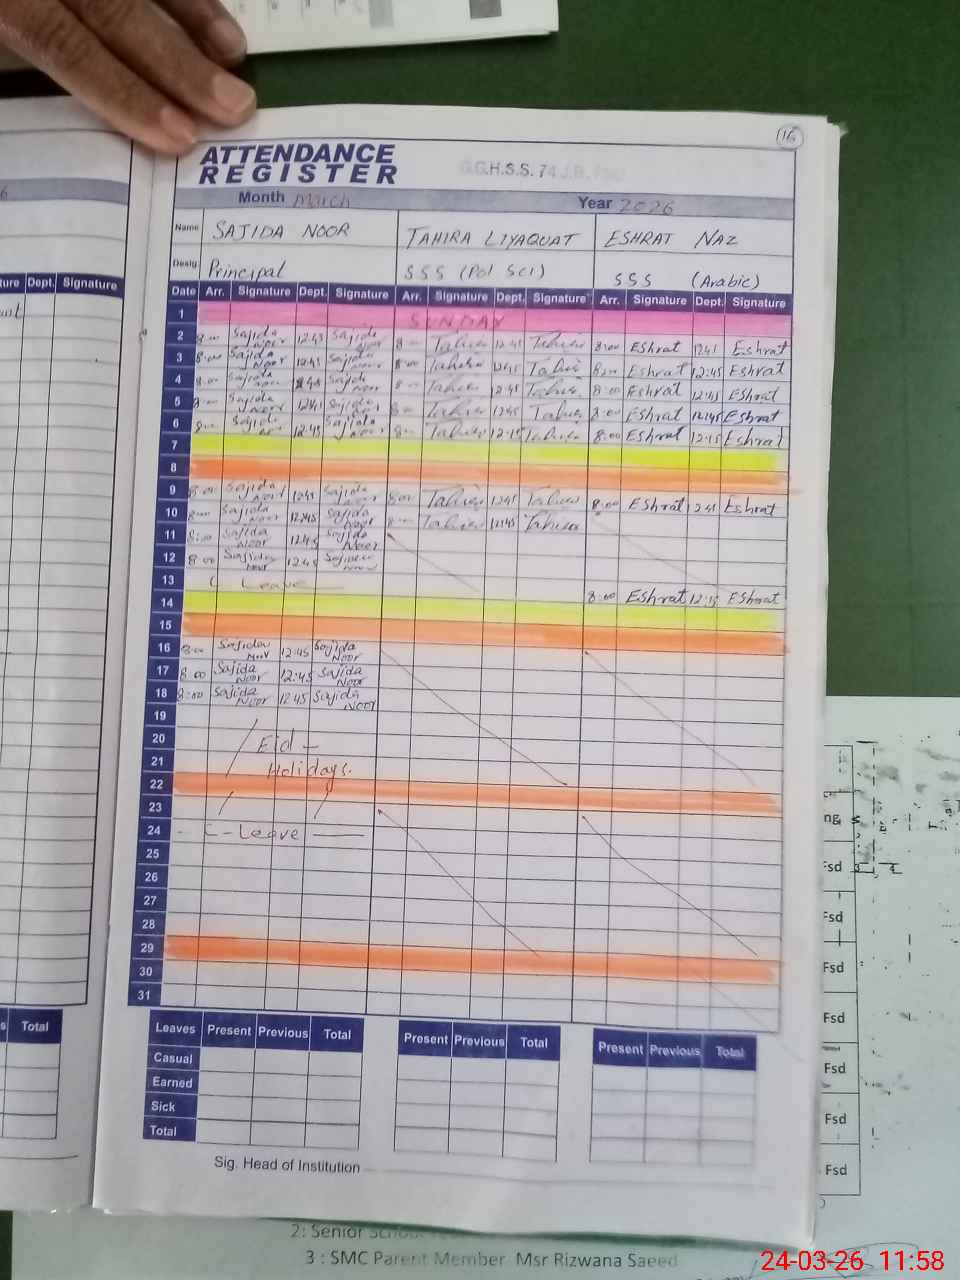 16
ATTENDANCE
REGISTER
G.G.H.S.S. 74 J.B.
Month March Year 2026
Name SAJIDA NOOR TAHIRA LIYAQUAT ESHRAT NAZ
Desig. Principal SSS (Pol Sci) SSS (Arabic)
Date Arr. Signature Dept. Signature Arr. Signature Dept. Signature Arr. Signature Dept. Signature
1 SUNDAY
2 Sajida Noor 12:45 Sajida Noor Tahira 12:45 Tahira 8:00 Eshrat 1245 Eshrat
3 8:00 Sajida Noor 1245 Sajida Noor 8:00 Tahira 1245 Tahira 8:00 Eshrat 12:45 Eshrat
4 8:00 Sajida Noor Sajida Noor Tahira 1245 Tahira 8:00 Eshrat 12:45 Eshrat
5 Sajida Noor 1245 Sajida Noor Tahira 1245 Tahira 8:00 Eshrat 12:45 Eshrat
6 Sajida Noor 12:45 Sajida Noor Tahira 12:15 Tahira 8:00 Eshrat 12:15 Eshrat
7
8
9 8:00 Sajida Noor 1245 Sajida Noor 8:00 Tahira 1245 Tahira 8:00 Eshrat 1245 Eshrat
10 Sajida Noor 12:45 Sajida Noor Tahira 12:45 Tahira
11 8:00 Sajida Noor 12:45 Sajida Noor
12 8:00 Sajida Noor 12:45 Sajida Noor
13 Leave 8:00 Eshrat 12:15 Eshrat
14
15
16 8:00 Sajida Noor 12:45 Sajida Noor
17 8:00 Sajida Noor 12:45 Sajida Noor
18 8:00 Sajida Noor 12:45 Sajida Noor
19
20 Eid -
21 Holidays.
22
23
24 - C-Leave -
25
26
27
28
29
30
31
Leaves Present Previous Total Present Previous Total Present Previous Total
Casual
Earned
Sick
Total
Sig. Head of Institution
ture Dept. Signature
Total
ng
Fsd
Fsd
Fsd
Fsd
Fsd
Fsd
Fsd
2: Senior
3 : SMC Parent Member Msr Rizwana Saeed
24-03-26 11:58